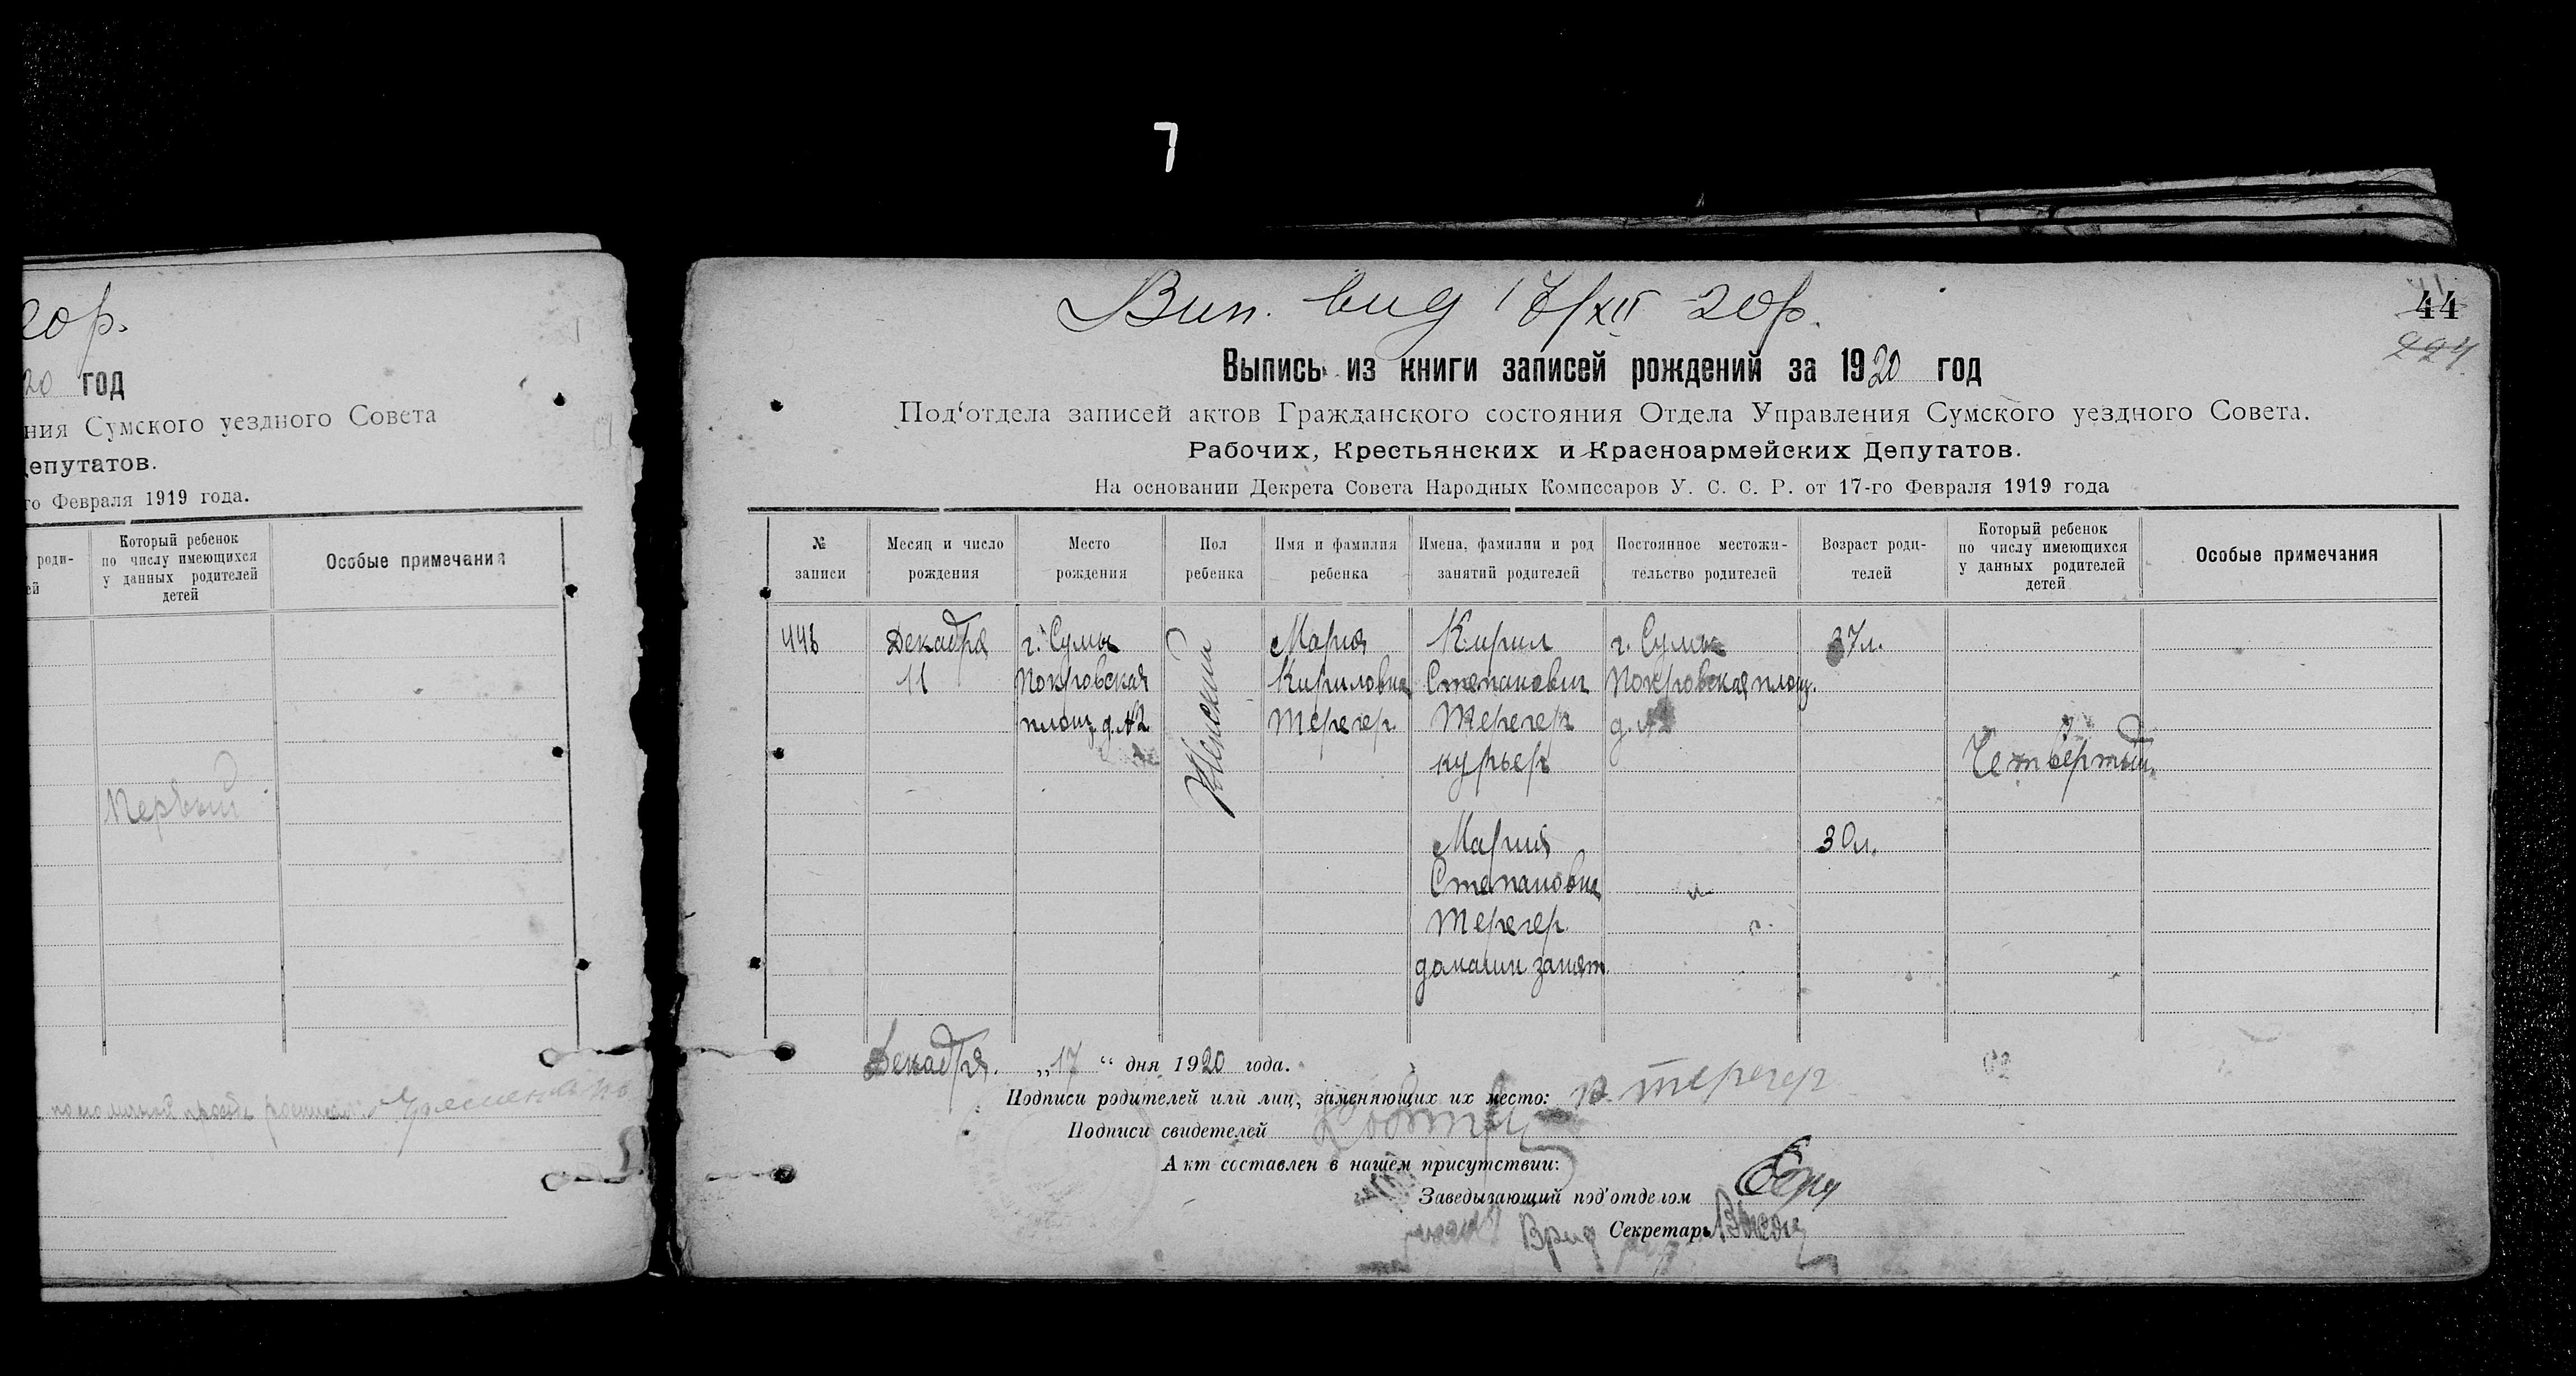 7
20р.
20 год
ния Сумского уездного Совета
депутатов.
го Февраля 1919 года.
роди-
ей
Который ребенок
по числу имеющихся
у данных родителей
детей
Особые примечания
Первый
Вип. вид 17/XII 20р.
44
224
Выпись из книги записей рождений за 1920 год
Под‘отдела записей актов Гражданского состояния Отдела Управления Сумского уездного Совета.
Рабочих, Крестьянских и Красноармейских Депутатов.
На основании Декрета Совета Народных Комиссаров У. С. С. Р. от 17-го Февраля 1919 года
№
записи
Месяц и число
рождения
Место
рождения
Пол
ребенка
Имя и фамилия
ребенка
Имена, фамилии и род
занятий родителей
Постоянное местожи-
тельство родителей
Возраст роди-
телей
Который ребенок
по числу имеющихся
у данных родителей
детей
Особые примечания
446
Декабря
11
г. Сумы
Покровская
площ. д. №2
Женский
Мария
Кириловна
Терегер
Кирил
Степанович
Терегер
курьер
г. Сумы
Покровская площ.
д. №2
37л.
Четвертый
Мария
Степановна
Терегер.
домашн занят.
30л.
Декабря. „17“ дня 1920 года.
Подписи родителей или лиц, заменяющих их место: К. Терегер
Подписи свидетелей
Акт составлен в нашем присутствии:
Заведывающий под‘отделом
Врид Секретарь